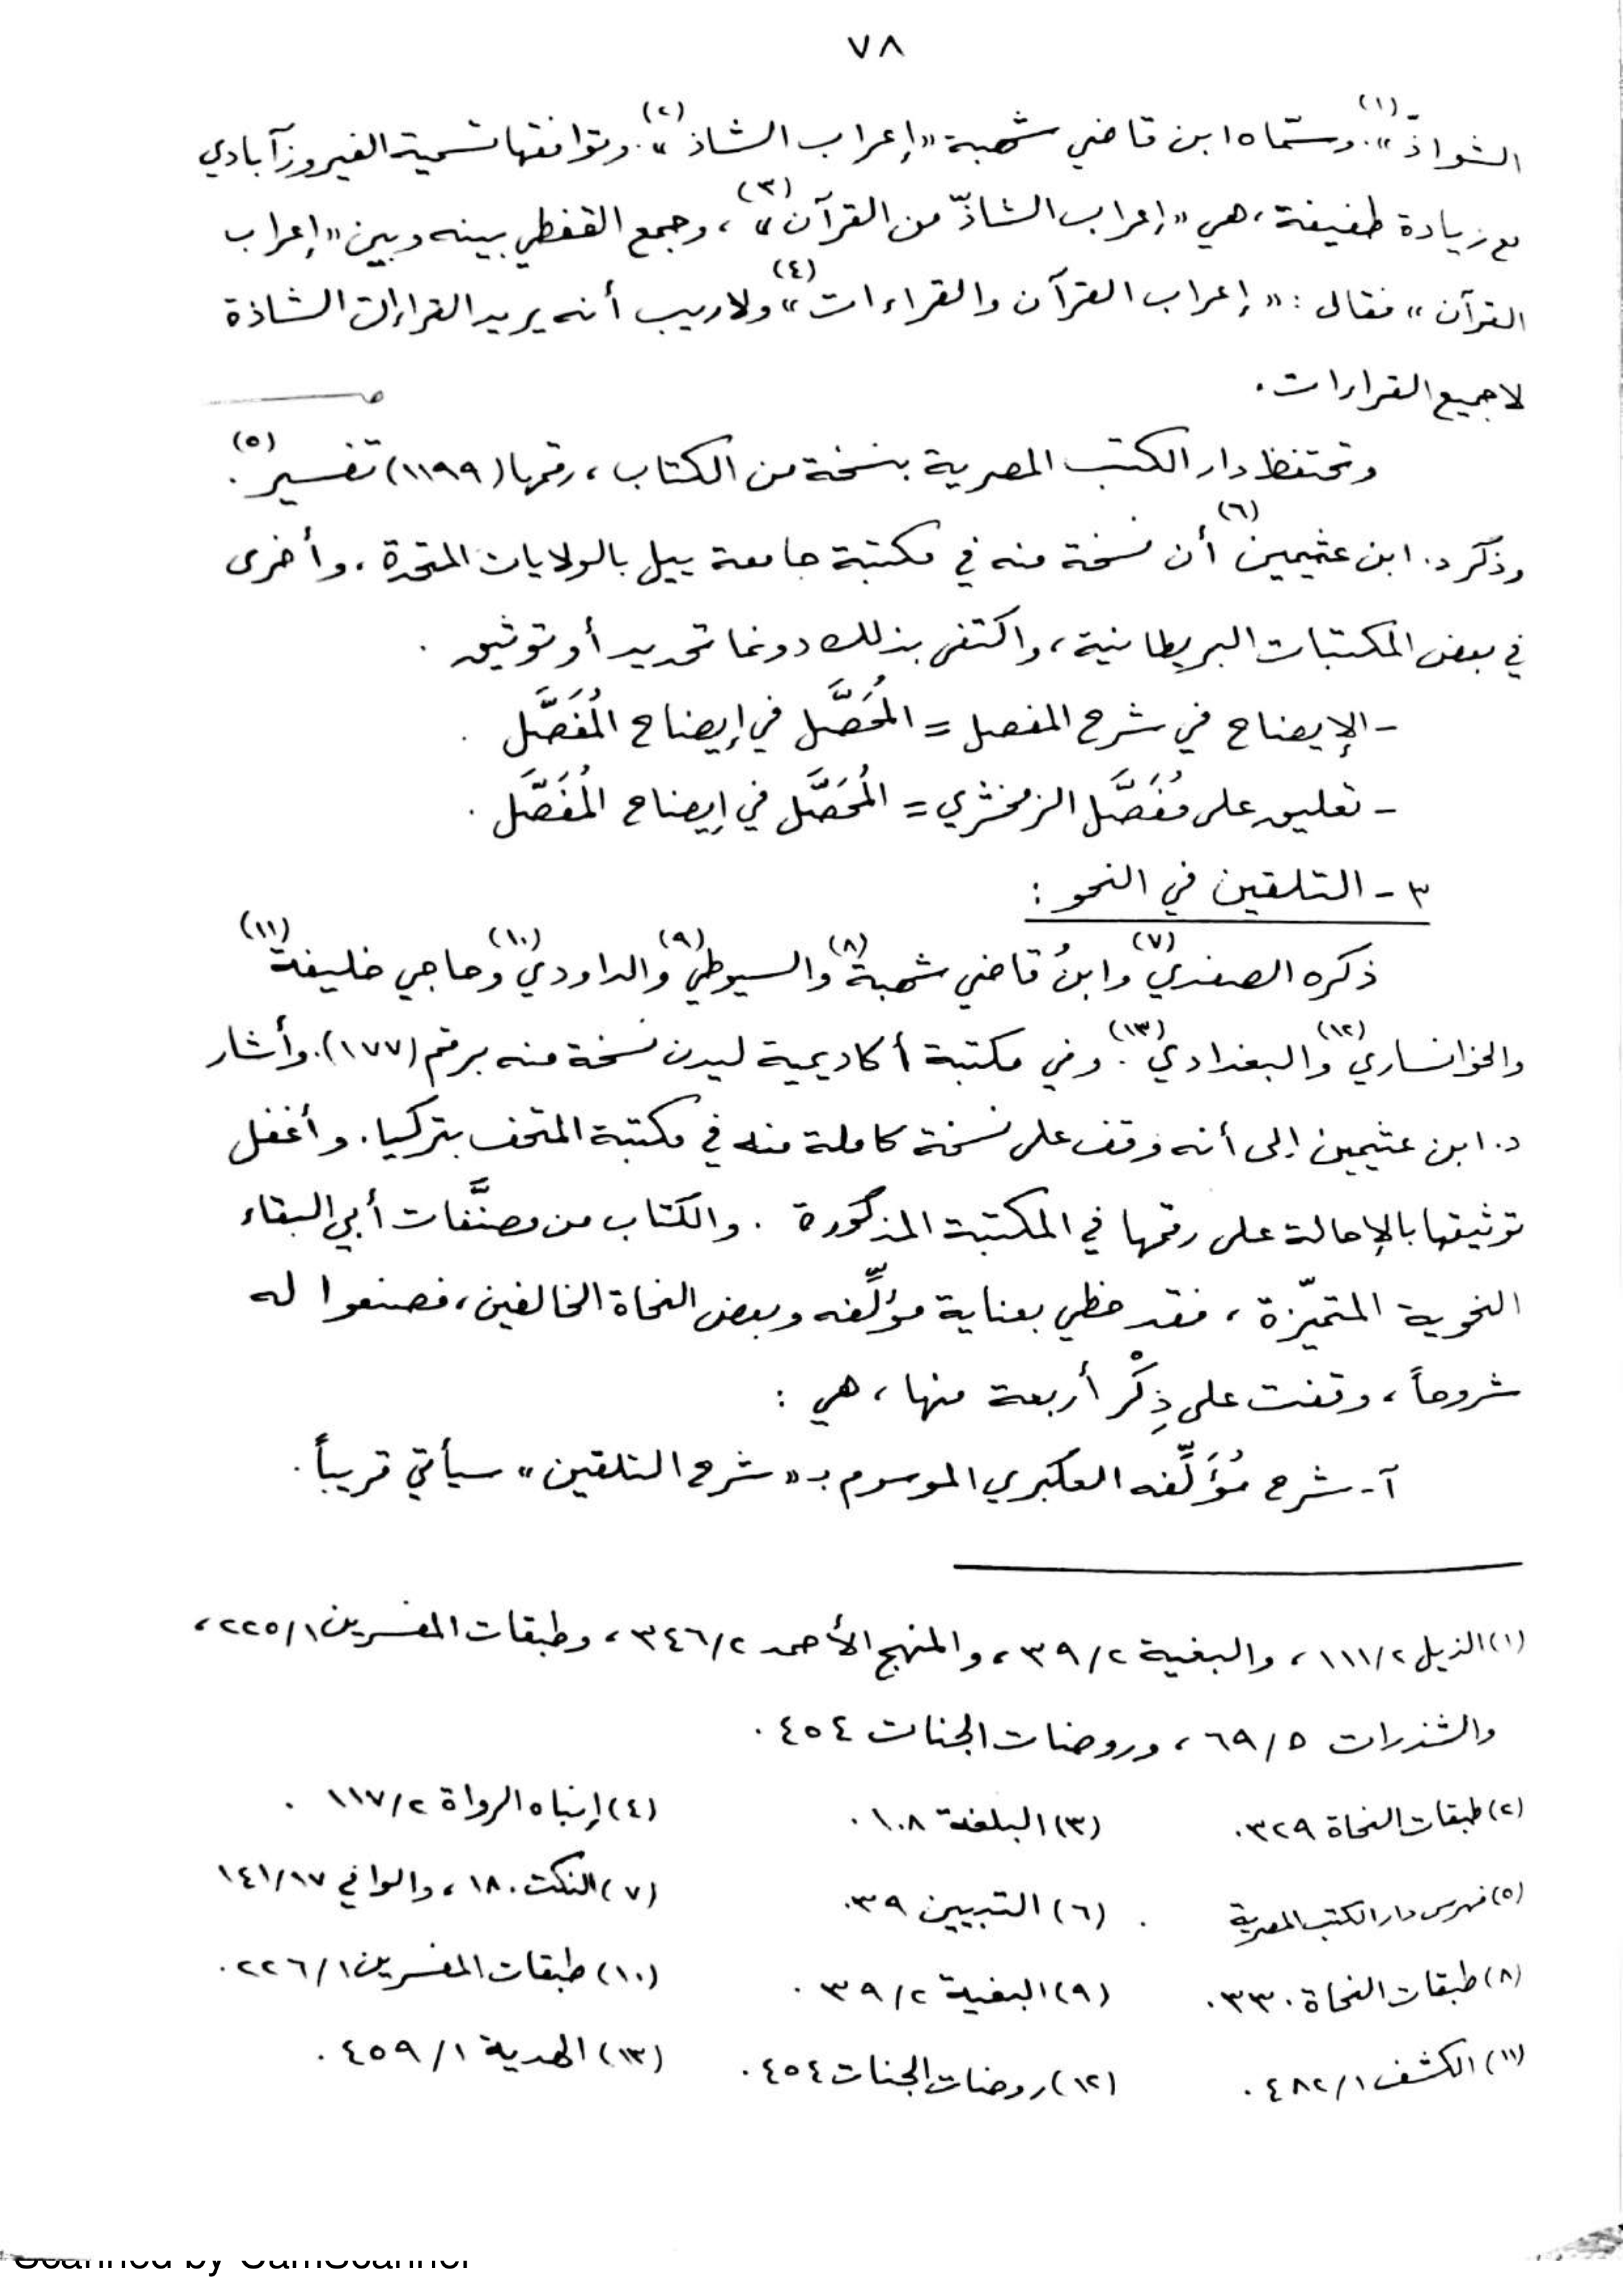 ٧٨
الشواذّ»(١). وسمّاه ابن قاضي شهبة «إعراب الشاذ»(٢). وتوافقها تسمية الفيروزآبادي
مع زيادة طفيفة، هي «إعراب الشاذّ من القرآن»(٣)، وجمع القفطي بينه وبين «إعراب
القرآن» فقال: «إعراب القرآن والقراءات»(٤) ولا ريب أنه يريد القراءات الشاذة
لا جميع القراءات.
وتحتفظ دار الكتب المصرية بنسخة من الكتاب، رقمها (١١٩٩) تفسير(٥).
وذكر د. ابن عثيمين(٦) أن نسخة منه في مكتبة جامعة ييل بالولايات المتحدة، وأخرى
في بعض المكتبات البريطانية، واكتفى بذلك دونما تحديد أو توثيق.
- الإيضاح في شرح المفصل = المُحَصَّل في إيضاح المُفَصَّل.
- تعليق على مُفَصَّل الزمخشري = المُحَصَّل في إيضاح المُفَصَّل.
٣ - التلقين في النحو:
ذكره الصفدي(٧) وابنُ قاضي شهبة(٨) والسيوطي(٩) والداودي(١٠) وحاجي خليفة(١١)
والخوانساري(١٢) والبغدادي(١٣). وفي مكتبة أكاديمية ليدن نسخة منه برقم (١٧٧). وأشار
د. ابن عثيمين إلى أنه وقف على نسخة كاملة منه في مكتبة المتحف بتركيا. وأغفل
توثيقها بالإحالة على رقمها في المكتبة المذكورة. والكتاب من مصنَّفات أبي البقاء
النحوية المتميّزة، فقد حظي بعناية مؤلِّفه وبعض النحاة الخالفين، فصنعوا له
شروحاً، وقفت على ذِكْر أربعة منها، هي:
آ- شرح مُؤَلِّفه العكبري الموسوم بـ «شرح التلقين» سيأتي قريباً.
(١) الذيل ١١١/٢، والبغية ٣٩/٢، والمنهج الأحمد ٣٤٦/٢، وطبقات المفسرين ٢٢٥/١،
والشذرات ٦٩/٥، وروضات الجنات ٤٥٤.
(٢) طبقات النحاة ٣٢٩. (٣) البلغة ١٠٨. (٤) إنباه الرواة ١١٧/٢.
(٥) فهرس دار الكتب المصرية . (٦) التبيين ٣٩. (٧) النكت ١٨٠، والوافي ١٤١/١٧
(٨) طبقات النحاة ٣٣٠. (٩) البغية ٣٩/٢. (١٠) طبقات المفسرين ٢٢٦/١.
(١١) الكشف ٤٨٢/١. (١٢) روضات الجنات ٤٥٤. (١٣) الهدية ٤٥٩/١.
Scanned by CamScanner